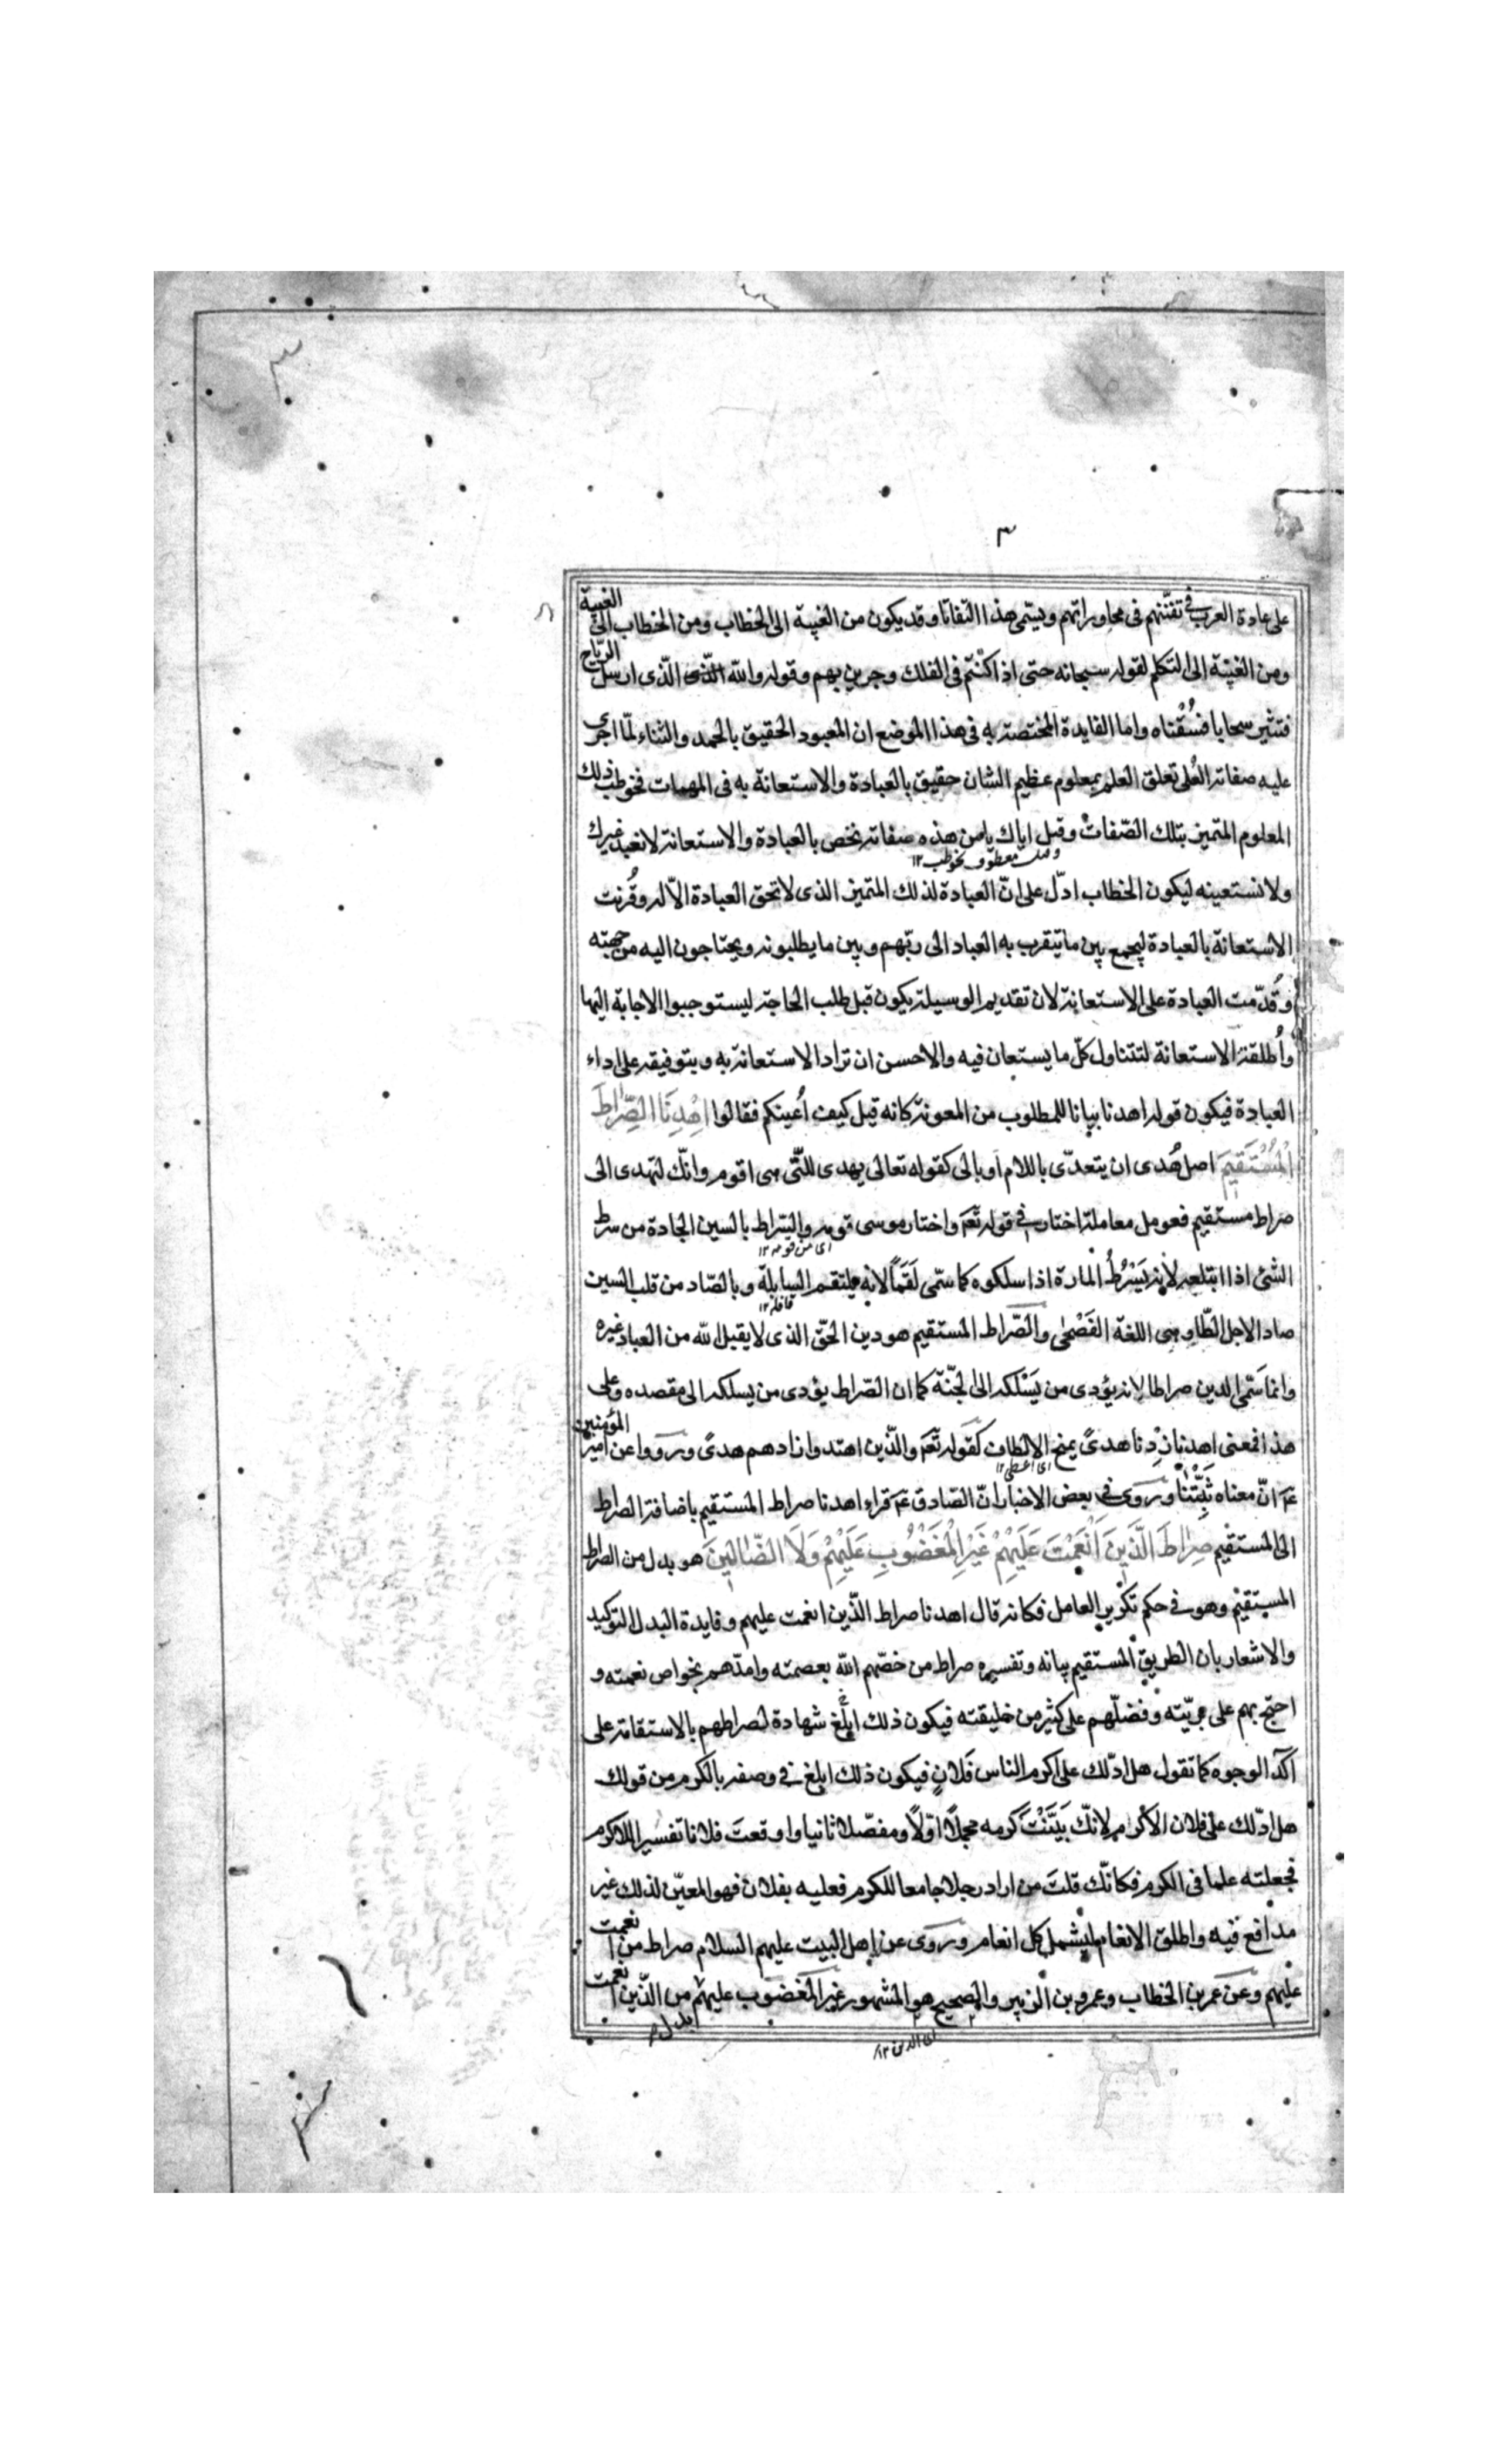 ٣
على عادة العرب في تفنّنهم فى محاوراتهم ويسمّى هذا التفاتا وقد يكون من الغيبة الى الخطاب ومن الخطاب الى الغيبة
ومن الغيبة الى التكلم لقوله سبحانه حتى اذا كنتم فى الفلك وجرين بهم وقوله والله الّذى الّذى ارسل الرّياح
فتثير سحابا فسُقْناه واما الفايدة المختصة به فى هذا الموضع ان المعبود الحقيق بالحمد والثناء لمّا اجرى
عليه صفاته العُلى تعلق العلم بمعلوم عظيم الشان حقيق بالعبادة والاستعانة به فى المهمات فخوطب ذلك
المعلوم المتميز بتلك الصّفات وقيل اياك يا من هذه صفاته نخص بالعبادة والاستعانة لا نعبد غيرك
معطوف بخوطب ١٢
ولا نستعينه ليكون الخطاب ادلّ على انّ العبادة لذلك المتميز الذى لا تحق العبادة الّا له وقُرنت
الاستعانة بالعبادة ليجمع بين ما يتقرب به العباد الى ربّهم وبين ما يطلبونه ويحتاجون اليه من جهته
وقُدّمت العبادة على الاستعانة لان تقديم الوسيلة يكون قبل طلب الحاجة ليستوجبوا الاجابة اليها
وأُطلقت الاستعانة لتتناول كلّ ما يستعان فيه والاحسن ان تراد الاستعانة به وبتوفيقه على اداء
العبادة فيكون قوله اهدنا بيانا للمطلوب من المعونة كانه قيل كيف أُعينكم فقالوا اِهْدِنَا الصِّرٰاطَ
الْمُسْتَقيمَ اصل هُدى ان يتعدّى باللام او بالى كقوله تعالى يهدى للّتى هى اقوم وانّك لتهدى الى
صراط مستقيم فعومل معاملة اختار في قوله تعَ واختار موسى قومه والسّراط بالسين الجادة من سرط
اى من قومه ١٢
الشئ اذا ابتلعه لانه يَسْرُطُ المارة اذا سلكوه كما سمّى لَقَماً لانه يلتقم السابلة وبالصّاد من قلب السين
قافله ١٢
صادا لاجل الطّاء وهى اللغة الفَصْحى والصّراط المستقيم هو دين الحقّ الذى لا يقبل الله من العباد غيره
وانما سَمّى الدين صراطا لانه يؤدى من يَسْلكه الى الجنّة كما ان الصّراط يؤدى من يسلكه الى مقصده وعلى
هذا فمعنى اهدنا زِدْنا هدىً بمنح الالطاف كقوله تعَ والّذين اهتدوا زادهم هدىً ورووا عن امير المؤمنين
اى اعطى ١٢
عَ انّ معناه ثَبِّتْنا ورَوى في بعض الاخبار انّ الصّادق عَ قراء اهدنا صراط المستقيم باضافة الصراط
الى المستقيم صِرٰاطَ الَّذينَ اَنْعَمْتَ عَلَيْهِمْ غَيْرِ الْمَغْضُوبِ عَلَيْهِمْ وَلَا الضّٰالّينَ هو بدل من الصراط
المستقيم وهو في حكم تكرير العامل فكانه قال اهدنا صراط الّذين انعمت عليهم وفايدة البدل التوكيد
والاشعار بان الطريق المستقيم بيانه وتفسيره صراط من خصّهم الله بعصمته وامدّهم بخواص نعمته و
احتج بهم على بريّته وفضلّهم على كثير من خليقته فيكون ذلك ابلَغ شهادة لصراطهم بالاستقامة على
اكد الوجوه كما تقول هل ادلّك على اكرم الناس فَلانٍ فيكون ذلك ابلغ في وصفه بالكرم من قولك
هل ادلّك على فلان الاكرم لانّك بَيَّنْتَ كرمه مجملاً اوّلاً ومفصّلا ثانيا واوقعتَ فلانا تفسيرا للاكرم
فجعلته علما فى الكرم فكانّك قلتَ من اراد رجلا جامعا للكرم فعليه بفلان فهو المعيّن لذلك غير
مدافع فيه واطلق الانعام ليشمل كل انعام ورَوى عن اهل البيت عليهم السلام صراط من انعمت
عليهم وعن عمر بن الخطاب وعمرو بن الزبير والصحيح هو المشهور غير المغضوب عليهم من الّذين انعمت
اى الذين ١٢